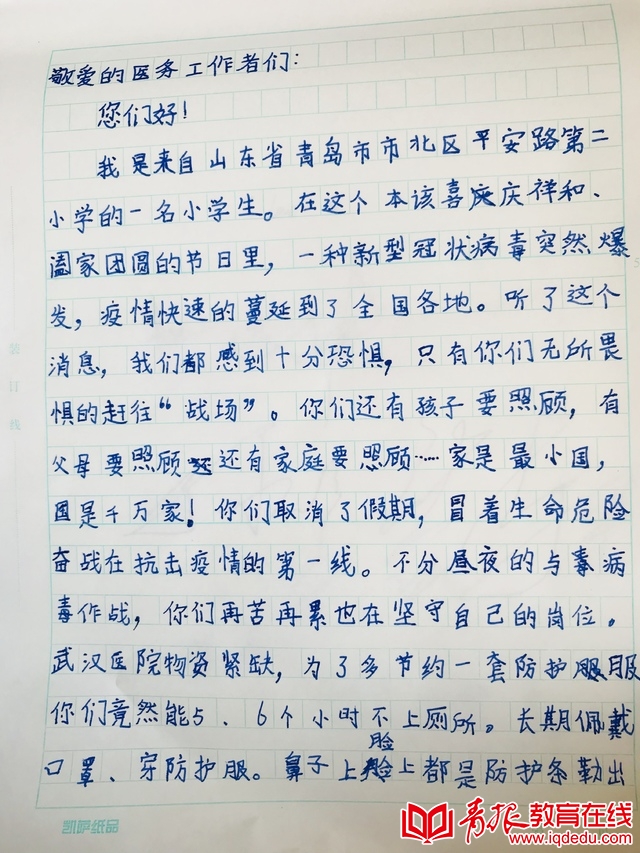 敬爱的医务工作者们：
您们好！
我是来自山东省青岛市市北区平安路第二
小学的一名小学生。在这个本该喜庆祥和、
阖家团圆的节日里，一种新型冠状病毒突然爆
发，疫情快速的蔓延到了全国各地。听了这个
消息，我们都感到十分恐惧，只有你们无所畏
惧的赶往“战场”。你们还有孩子要照顾，有
父母要照顾还有家庭要照顾……家是最小国，
国是千万家！你们取消了假期，冒着生命危险
奋战在抗击疫情的第一线。不分昼夜的与毒病
毒作战，你们再苦再累也在坚守自己的岗位。
武汉医院物资紧缺，为了多节约一套防护服
你们竟然能5、6个小时不上厕所。长期佩戴
口罩、穿防护服。鼻子上脸上都是防护条勒出
装订线
凯萨纸品
青报教育在线
www.iqdedu.com